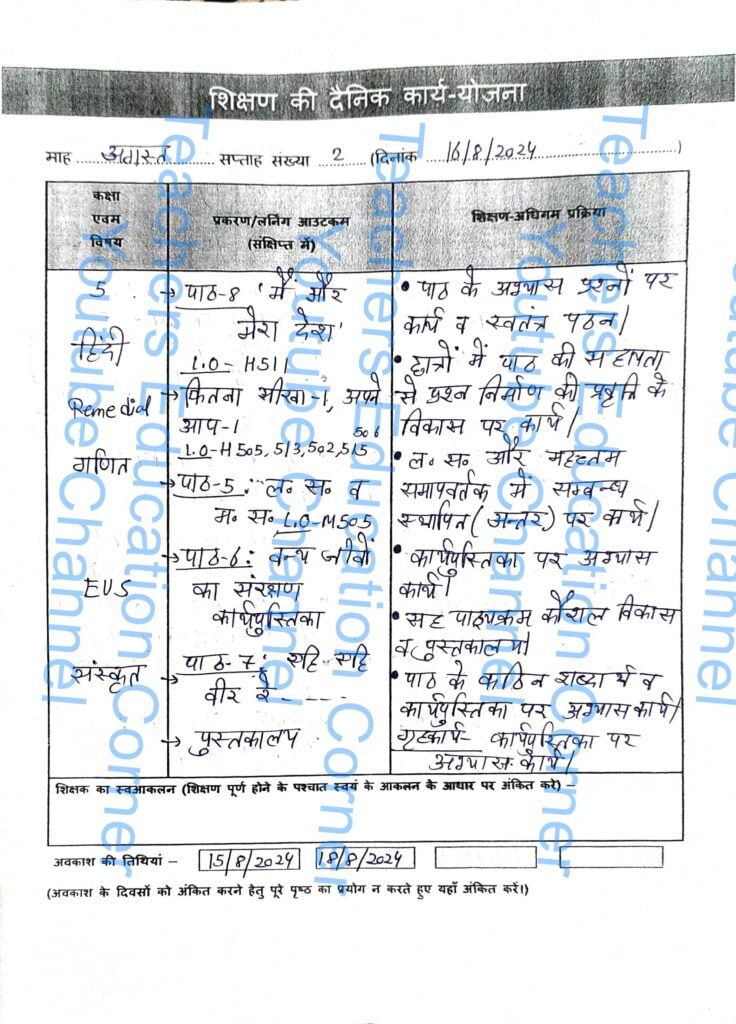 शिक्षण की दैनिक कार्य-योजना
माह अगस्त सप्ताह संख्या 2 (दिनांक 16/8/2024)
कक्षा
एवम
विषय
प्रकरण/लर्निंग आउटकम
(संक्षिप्त में)
शिक्षण-अधिगम प्रक्रिया
5
हिंदी
Remedial
गणित
EVS
संस्कृत
→ पाठ-8 'मैं और
मेरा देश'
L.O- H511
→ कितना सीखा-1, अपने
आप-1
506
L.O-H505, 513, 502, 515
→ पाठ-5: ल. स. व
म. स. L.O-M505
→ पाठ-6: वन्य जीवों
का संरक्षण
कार्यपुस्तिका
→ पाठ-7:
वीर रे - - - -
→ पुस्तकालय
• पाठ के अभ्यास प्रश्नों पर
कार्य व स्वतंत्र पठन।
• छात्रों में पाठ की सहायता
से प्रश्न निर्माण की प्रवृत्ति के
विकास पर कार्य।
• ल. स. और महत्तम
समापवर्तक में सम्बन्ध
स्थापित (अन्तर) पर कार्य।
• कार्यपुस्तिका पर अभ्यास
कार्य।
• सह पाठ्यक्रम कौशल विकास
व पुस्तकालय।
• पाठ के कठिन शब्दार्थ व
कार्यपुस्तिका पर अभ्यास कार्य।
गृहकार्य- कार्यपुस्तिका पर
अभ्यास कार्य।
शिक्षक का स्वआकलन (शिक्षण पूर्ण होने के पश्चात स्वयं के आकलन के आधार पर अंकित करें) –
अवकाश की तिथियां – 15/8/2024 18/8/2024
(अवकाश के दिवसों को अंकित करने हेतु पूरे पृष्ठ का प्रयोग न करते हुए यहाँ अंकित करें।)
Teachers Education Corner
Youtube Channel
Teachers Education Corner
Youtube Channel
Teachers Education Corner
Youtube Channel
Youtube Channel